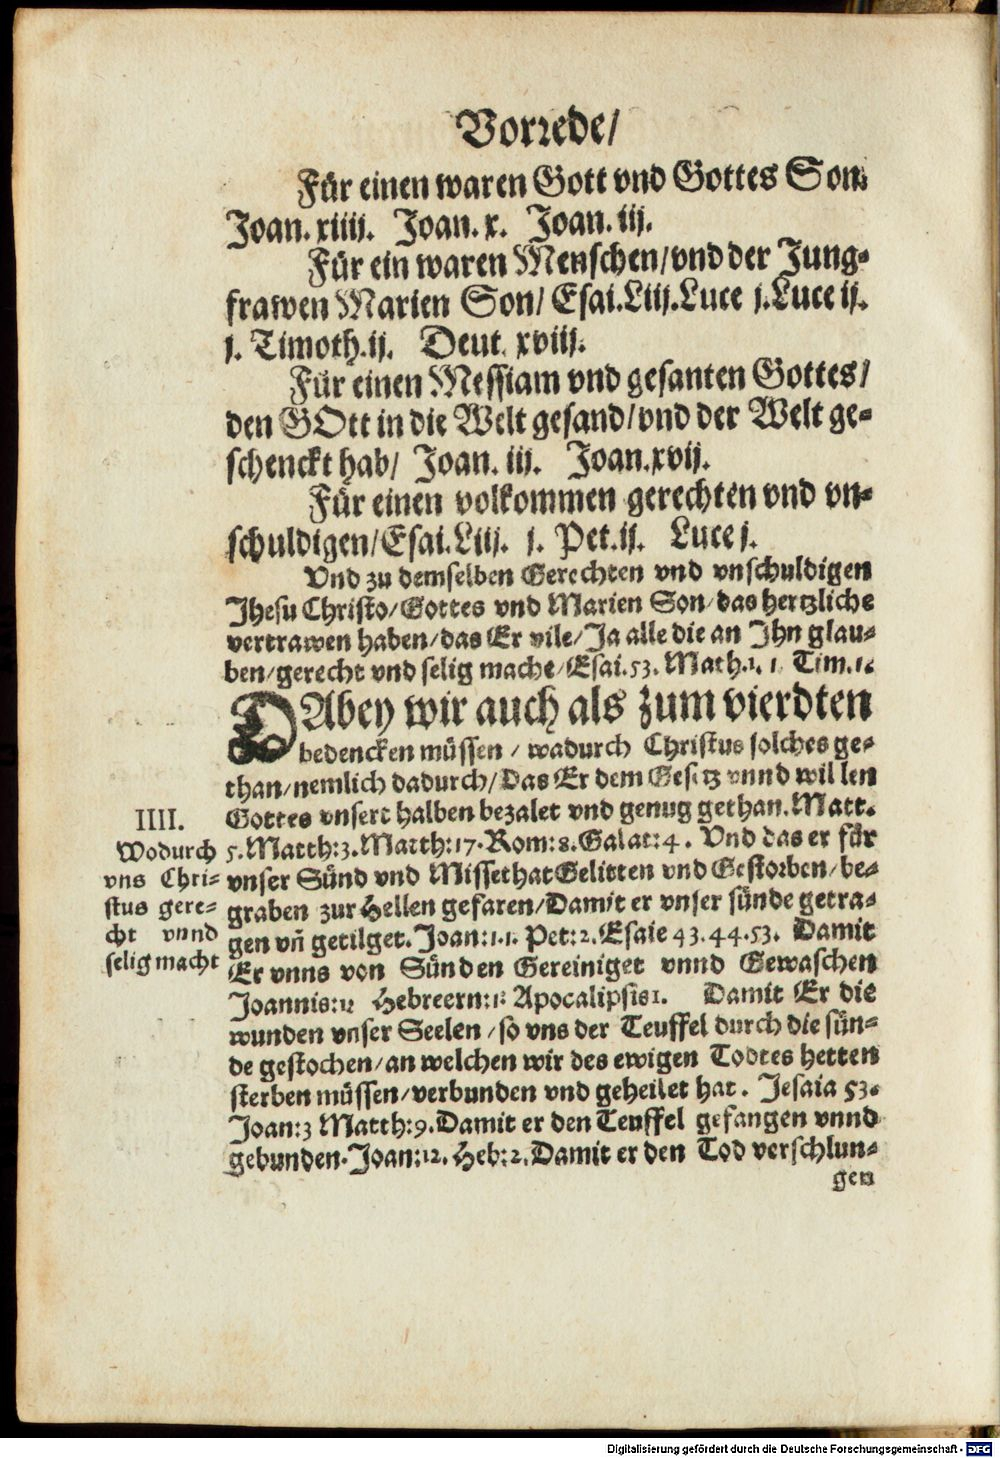 Vorrede/
Für einen waren Gott vnd Gottes Son.
Joan. xiiij. Joan. x. Joan. iij.
Für ein waren Menschen/vnd der Jung-
frawen Marien Son/ Esai. Liij. Luce j. Luce ij.
j. Timoth. ij. Deut. xviij.
Für einen Messiam vnd gesanten Gottes/
den GOtt in die Welt gesand/vnd der Welt ge-
schenckt hab/ Joan. iij. Joan. xvij.
Für einen volkommen gerechten vnd vn-
schuldigen/Esai. Liij. j. Pet. ij. Luce j.
Vnd zu demselben Gerechten vnd vnschuldigen
Jhesu Christo/Gottes vnd Marien Son/das hertzliche
vertrawen haben/das Er vile/Ja alle die an Jhn glau-
ben/gerecht vnd selig mache/Esai. 53. Math. 1. 1. Tim. 1.
DAbey wir auch als zum vierdten
bedencken müssen/ wadurch Christus solches ge-
than/nemlich dadurch/Das Er dem Gesetz vnnd willen
Gottes vnsert halben bezalet vnd genug gethan. Matt.
5. Matth: 3. Matth: 17. Rom: 8. Galat: 4. Vnd das er für
vnser Sünd vnd Missethat Gelitten vnd Gestorben/be-
graben zur Hellen gefaren/Damit er vnser sünde getra-
gen vn̄ getilget. Joan: 1. 1. Pet: 2. Esaie 43. 44. 53. Damit
Er vnns von Sünden Gereiniget vnnd Gewaschen
Joannis: 12 Hebreern: 1. Apocalipsis 1. Damit Er die
wunden vnser Seelen/so vns der Teuffel durch die sün-
de gestochen/an welchen wir des ewigen Todtes hetten
sterben müssen/verbunden vnd geheilet hat. Jesaia 53.
Joan: 3 Matth: 9. Damit er den Teuffel gefangen vnnd
gebunden. Joan: 12. Heb: 2. Damit er den Tod verschlun-
gen
IIII.
Wodurch
vns Chri-
stus gere-
cht vnnd
selig macht
Digitalisierung gefördert durch die Deutsche Forschungsgemeinschaft - DFG